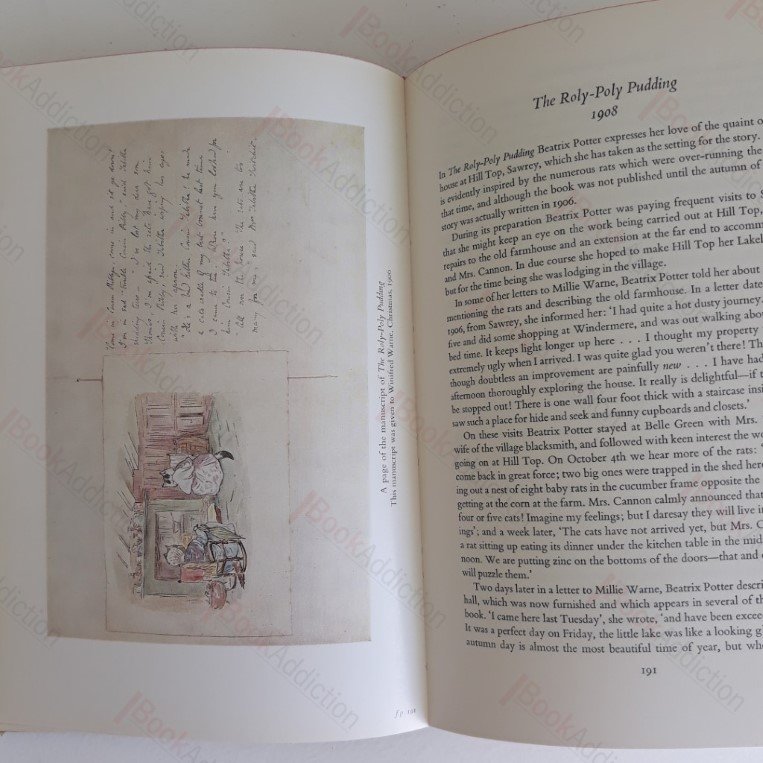 "Come in Cousin Ribby, come in and sit ye down!
I'm in sad trouble Cousin Ribby," said Tabitha
shedding tears. "I've lost my dear son
Thomas. I'm afraid the rats have got him
Cousin Ribby," said Tabitha wiping her eyes
with her apron.
"He's a bad kitten, Cousin Tabitha; he made
a cats cradle of my best bonnet last time
I came to tea. Where have you looked for
him Cousin Tabitha?"
"All over the house! The rats are too
many for me," said Mrs Tabitha Twitchit.
A page of the manuscript of The Roly-Poly Pudding
This manuscript was given to Winifred Warne, Christmas, 1906
The Roly-Poly Pudding
1908
In The Roly-Poly Pudding Beatrix Potter expresses her love of the quaint o
house at Hill Top, Sawrey, which she has taken as the setting for the story.
is evidently inspired by the numerous rats which were over-running the
that time, and although the book was not published until the autumn of
story was actually written in 1906.
During its preparation Beatrix Potter was paying frequent visits to S
that she might keep an eye on the work being carried out at Hill Top,
repairs to the old farmhouse and an extension at the far end to accomm
and Mrs. Cannon. In due course she hoped to make Hill Top her Lakel
but for the time being she was lodging in the village.
In some of her letters to Millie Warne, Beatrix Potter told her about
mentioning the rats and describing the old farmhouse. In a letter date
1906, from Sawrey, she informed her: 'I had quite a hot dusty journey.
five and did some shopping at Windermere, and was out walking abou
bed time. It keeps light longer up here . . . I thought my property
extremely ugly when I arrived. I was quite glad you weren't there! Th
though doubtless an improvement are painfully new . . . I have had
afternoon thoroughly exploring the house. It really is delightful—if t
be stopped out! There is one wall four foot thick with a staircase insid
saw such a place for hide and seek and funny cupboards and closets.'
On these visits Beatrix Potter stayed at Belle Green with Mrs.
wife of the village blacksmith, and followed with keen interest the wo
going on at Hill Top. On October 4th we hear more of the rats: '
come back in great force; two big ones were trapped in the shed here
ing out a nest of eight baby rats in the cucumber frame opposite the
getting at the corn at the farm. Mrs. Cannon calmly announced that
four or five cats! Imagine my feelings; but I daresay they will live in
ings'; and a week later, 'The cats have not arrived yet, but Mrs. C
a rat sitting up eating its dinner under the kitchen table in the mid
noon. We are putting zinc on the bottoms of the doors—that and c
will puzzle them.'
Two days later in a letter to Millie Warne, Beatrix Potter descri
hall, which was now furnished and which appears in several of th
book. 'I came here last Tuesday', she wrote, 'and have been excee
It was a perfect day on Friday, the little lake was like a looking g
autumn day is almost the most beautiful time of year, but whe
191
BookAddiction